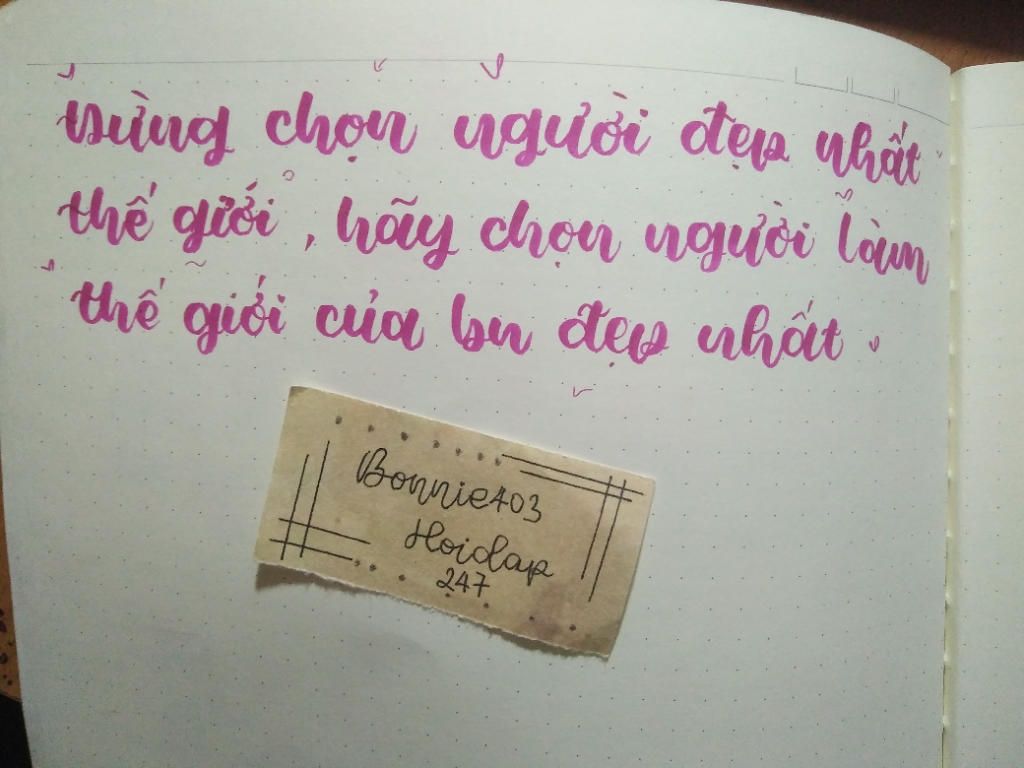 Đừng chọn người đẹp nhất
thế giới, hãy chọn người làm
thế giới của bn đẹp nhất.
Bonnie403
Hoidap
247